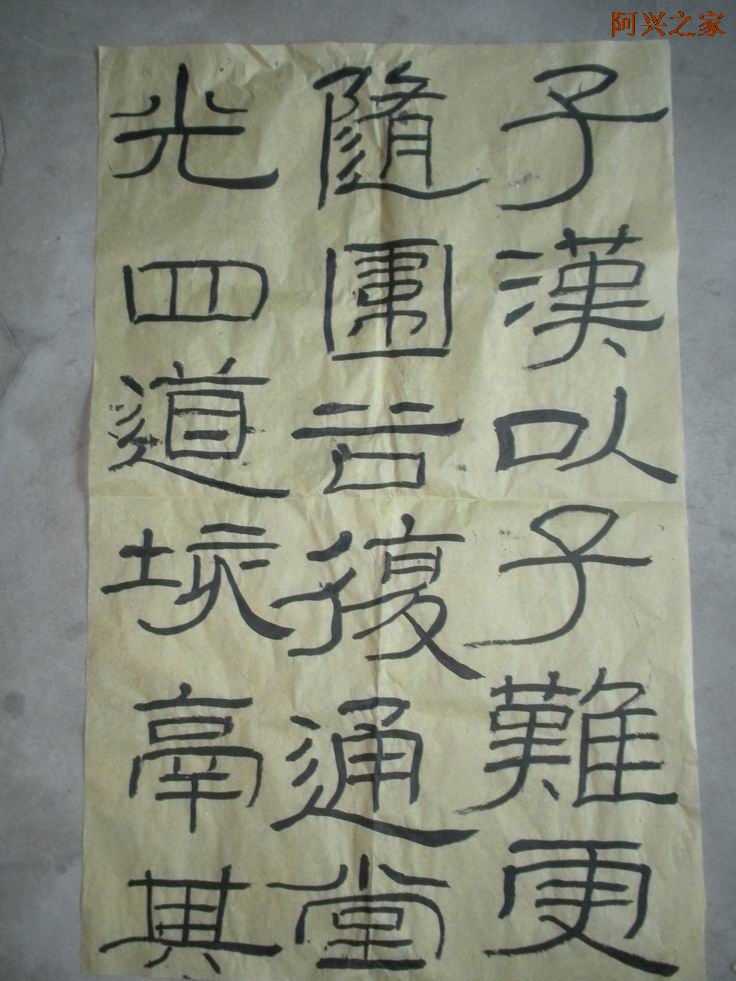 阿兴之家
子漢以子難更
隨圍谷復通堂
光四道垓鬲其